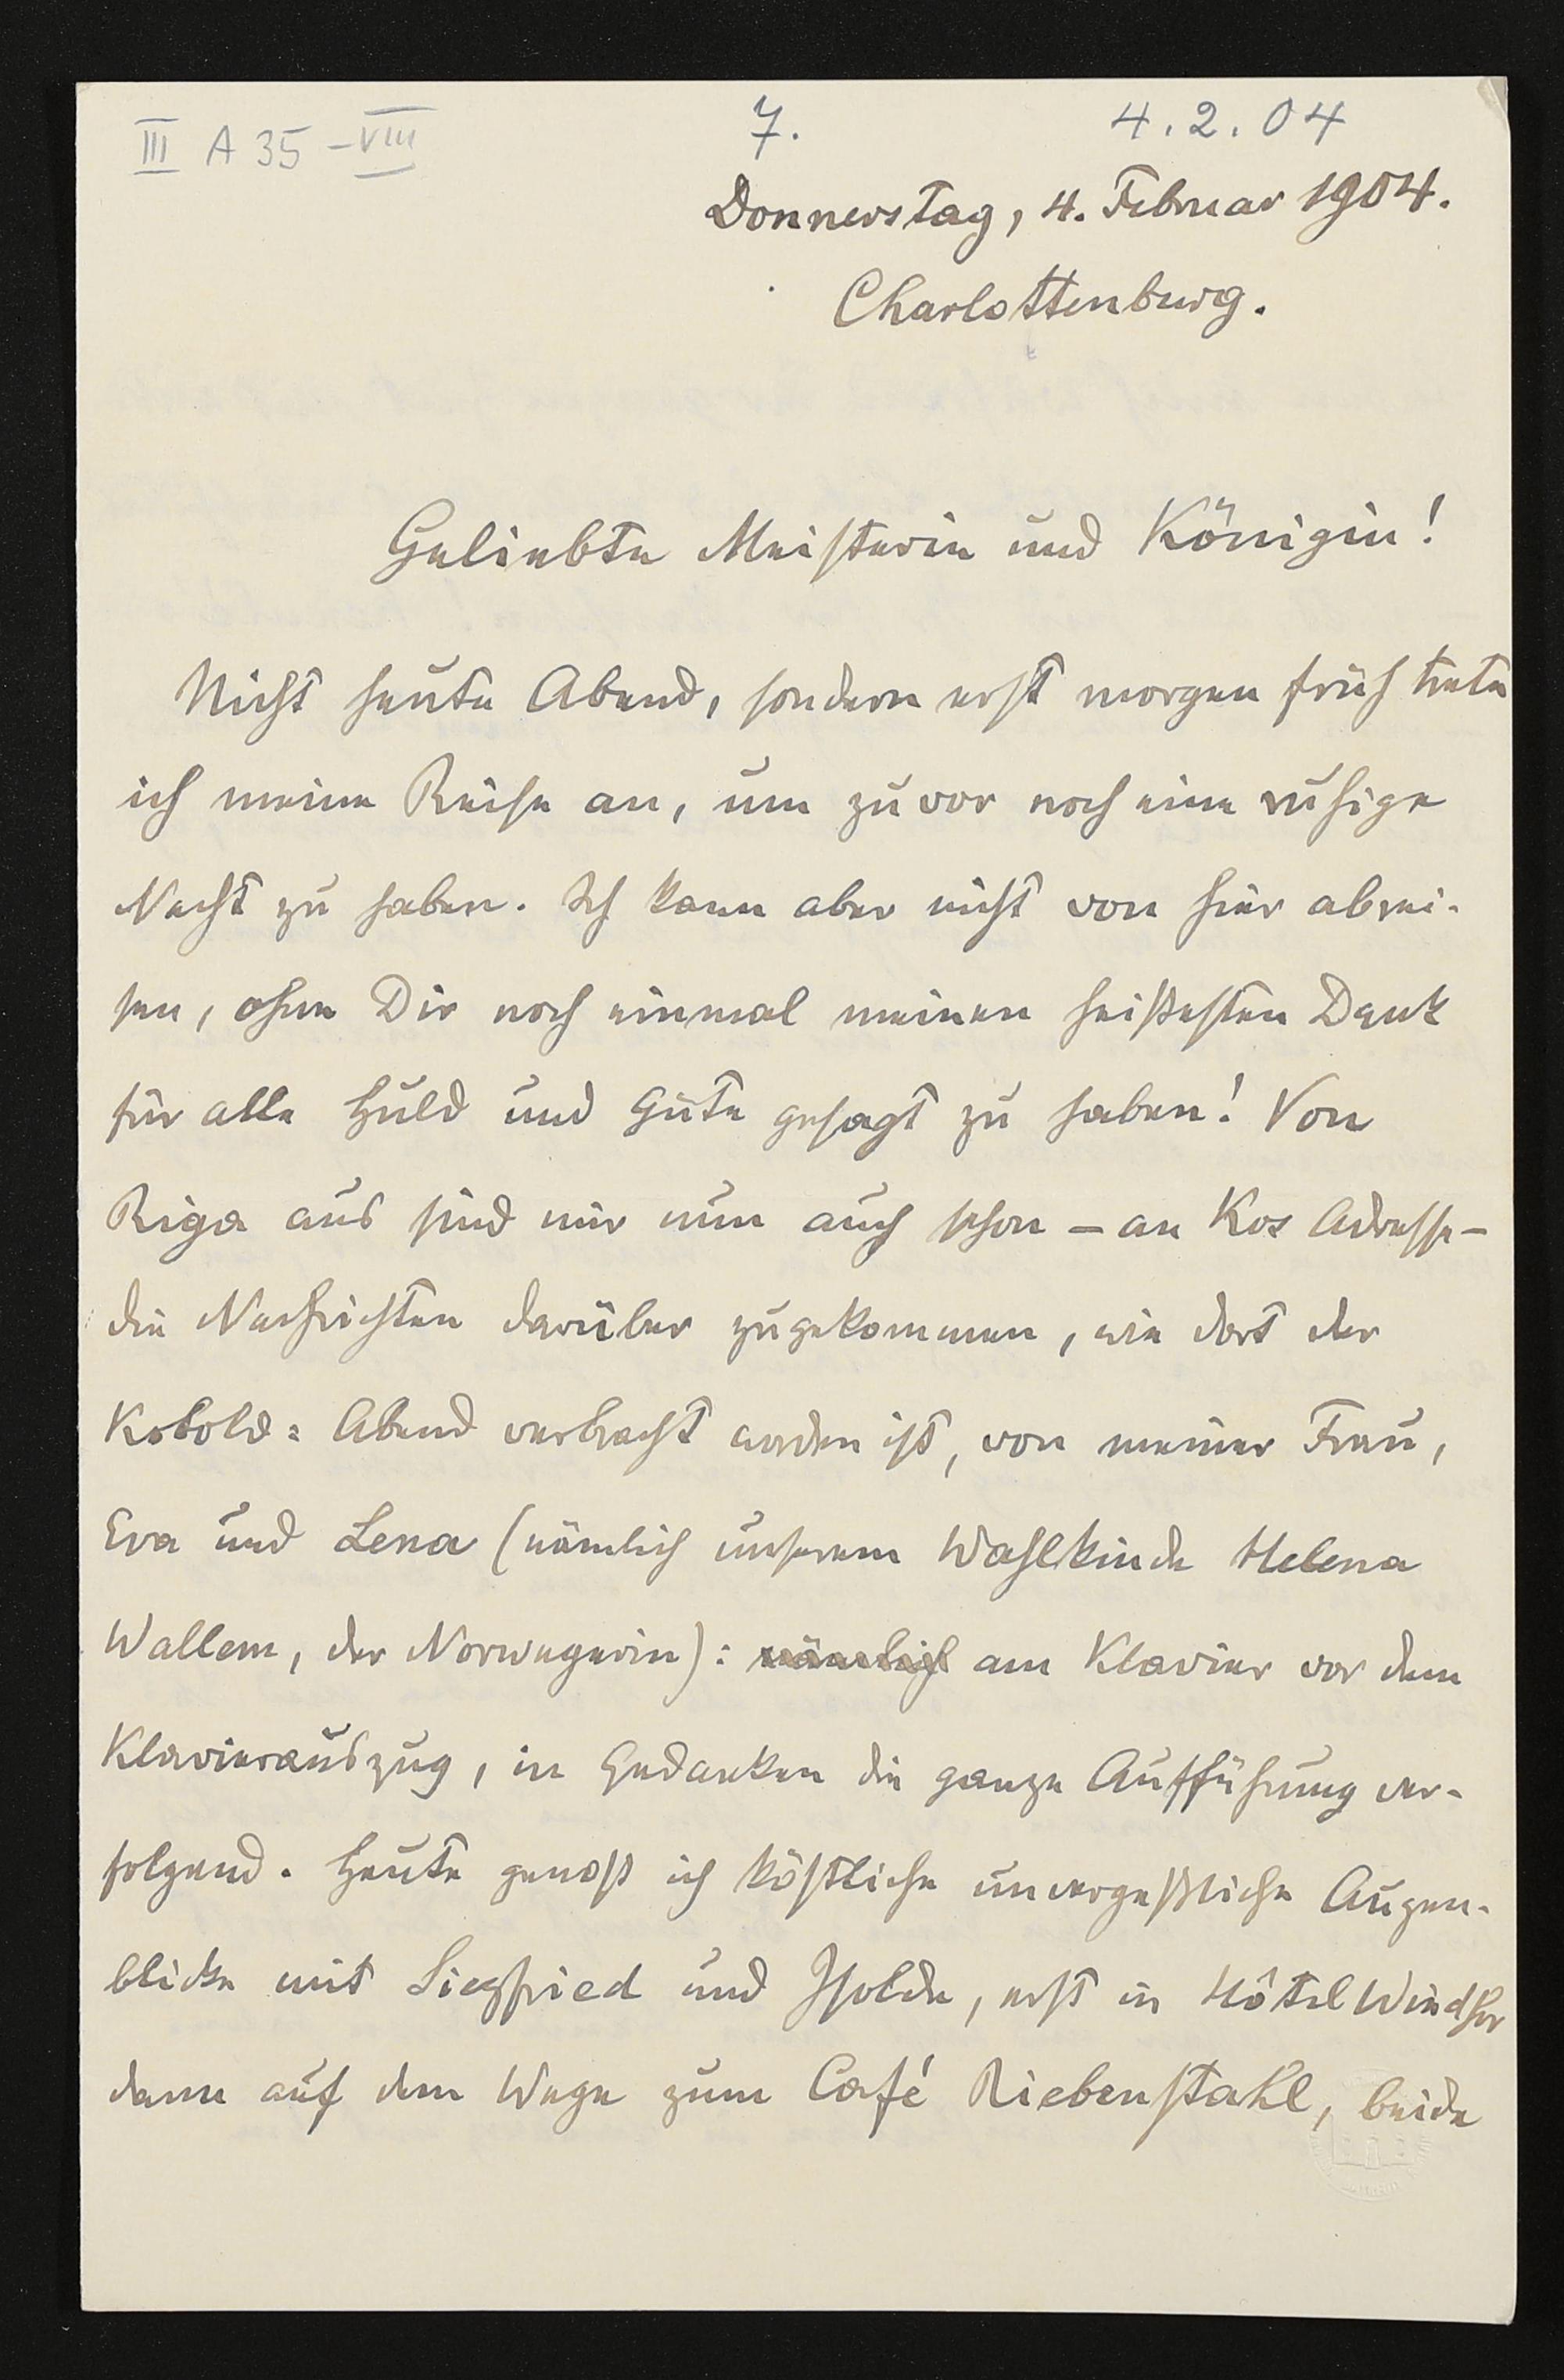 III A 35 - VIII
7.
4.2.04
Donnerstag, 4. Februar 1904.
Charlottenburg.
Geliebte Meisterin und Königin!
Nicht heute Abend, sondern erst morgen früh trete
ich meine Reise an, um zuvor noch eine ruhige
Nacht zu haben. Ich kann aber nicht von hier abrei-
sen, ohne Dir noch einmal meinen heißesten Dank
für alle Huld und Güte gesagt zu haben! Von
Riga aus sind mir nun auch schon – an Kos Adresse –
die Nachrichten darüber zugekommen, wie dort der
Kobold= Abend verbracht worden ist, von meiner Frau,
Eva und Lena (nämlich unserem Wahlkinde Helena
Wallem, der Norwegerin): nämlich am Klavier vor dem
Klavierauszug, in Gedanken die ganze Aufführung ver-
folgend. Heute genoß ich köstliche unvergeßliche Augen-
blicke mit Siegfried und Isolde, erst in Hôtel Windsor
dann auf dem Wege zum Café Riebenstahl, beide